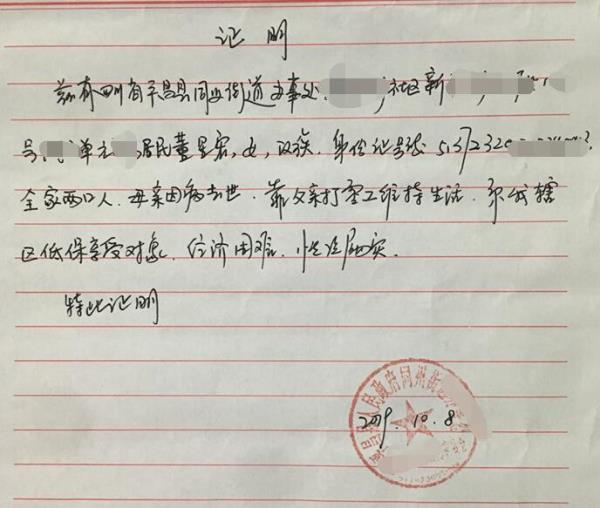 证明
兹有四川省平昌县同州街道办事处 社区新
号 单元 居民董星宏,女,汉族,身份证号张 5137232
全家两口人,母亲因病去世,靠父亲打零工维持生活,系我辖
区低保享受对象,经济困难,情况属实.
特此证明
人民政府同州街
2019.10.8